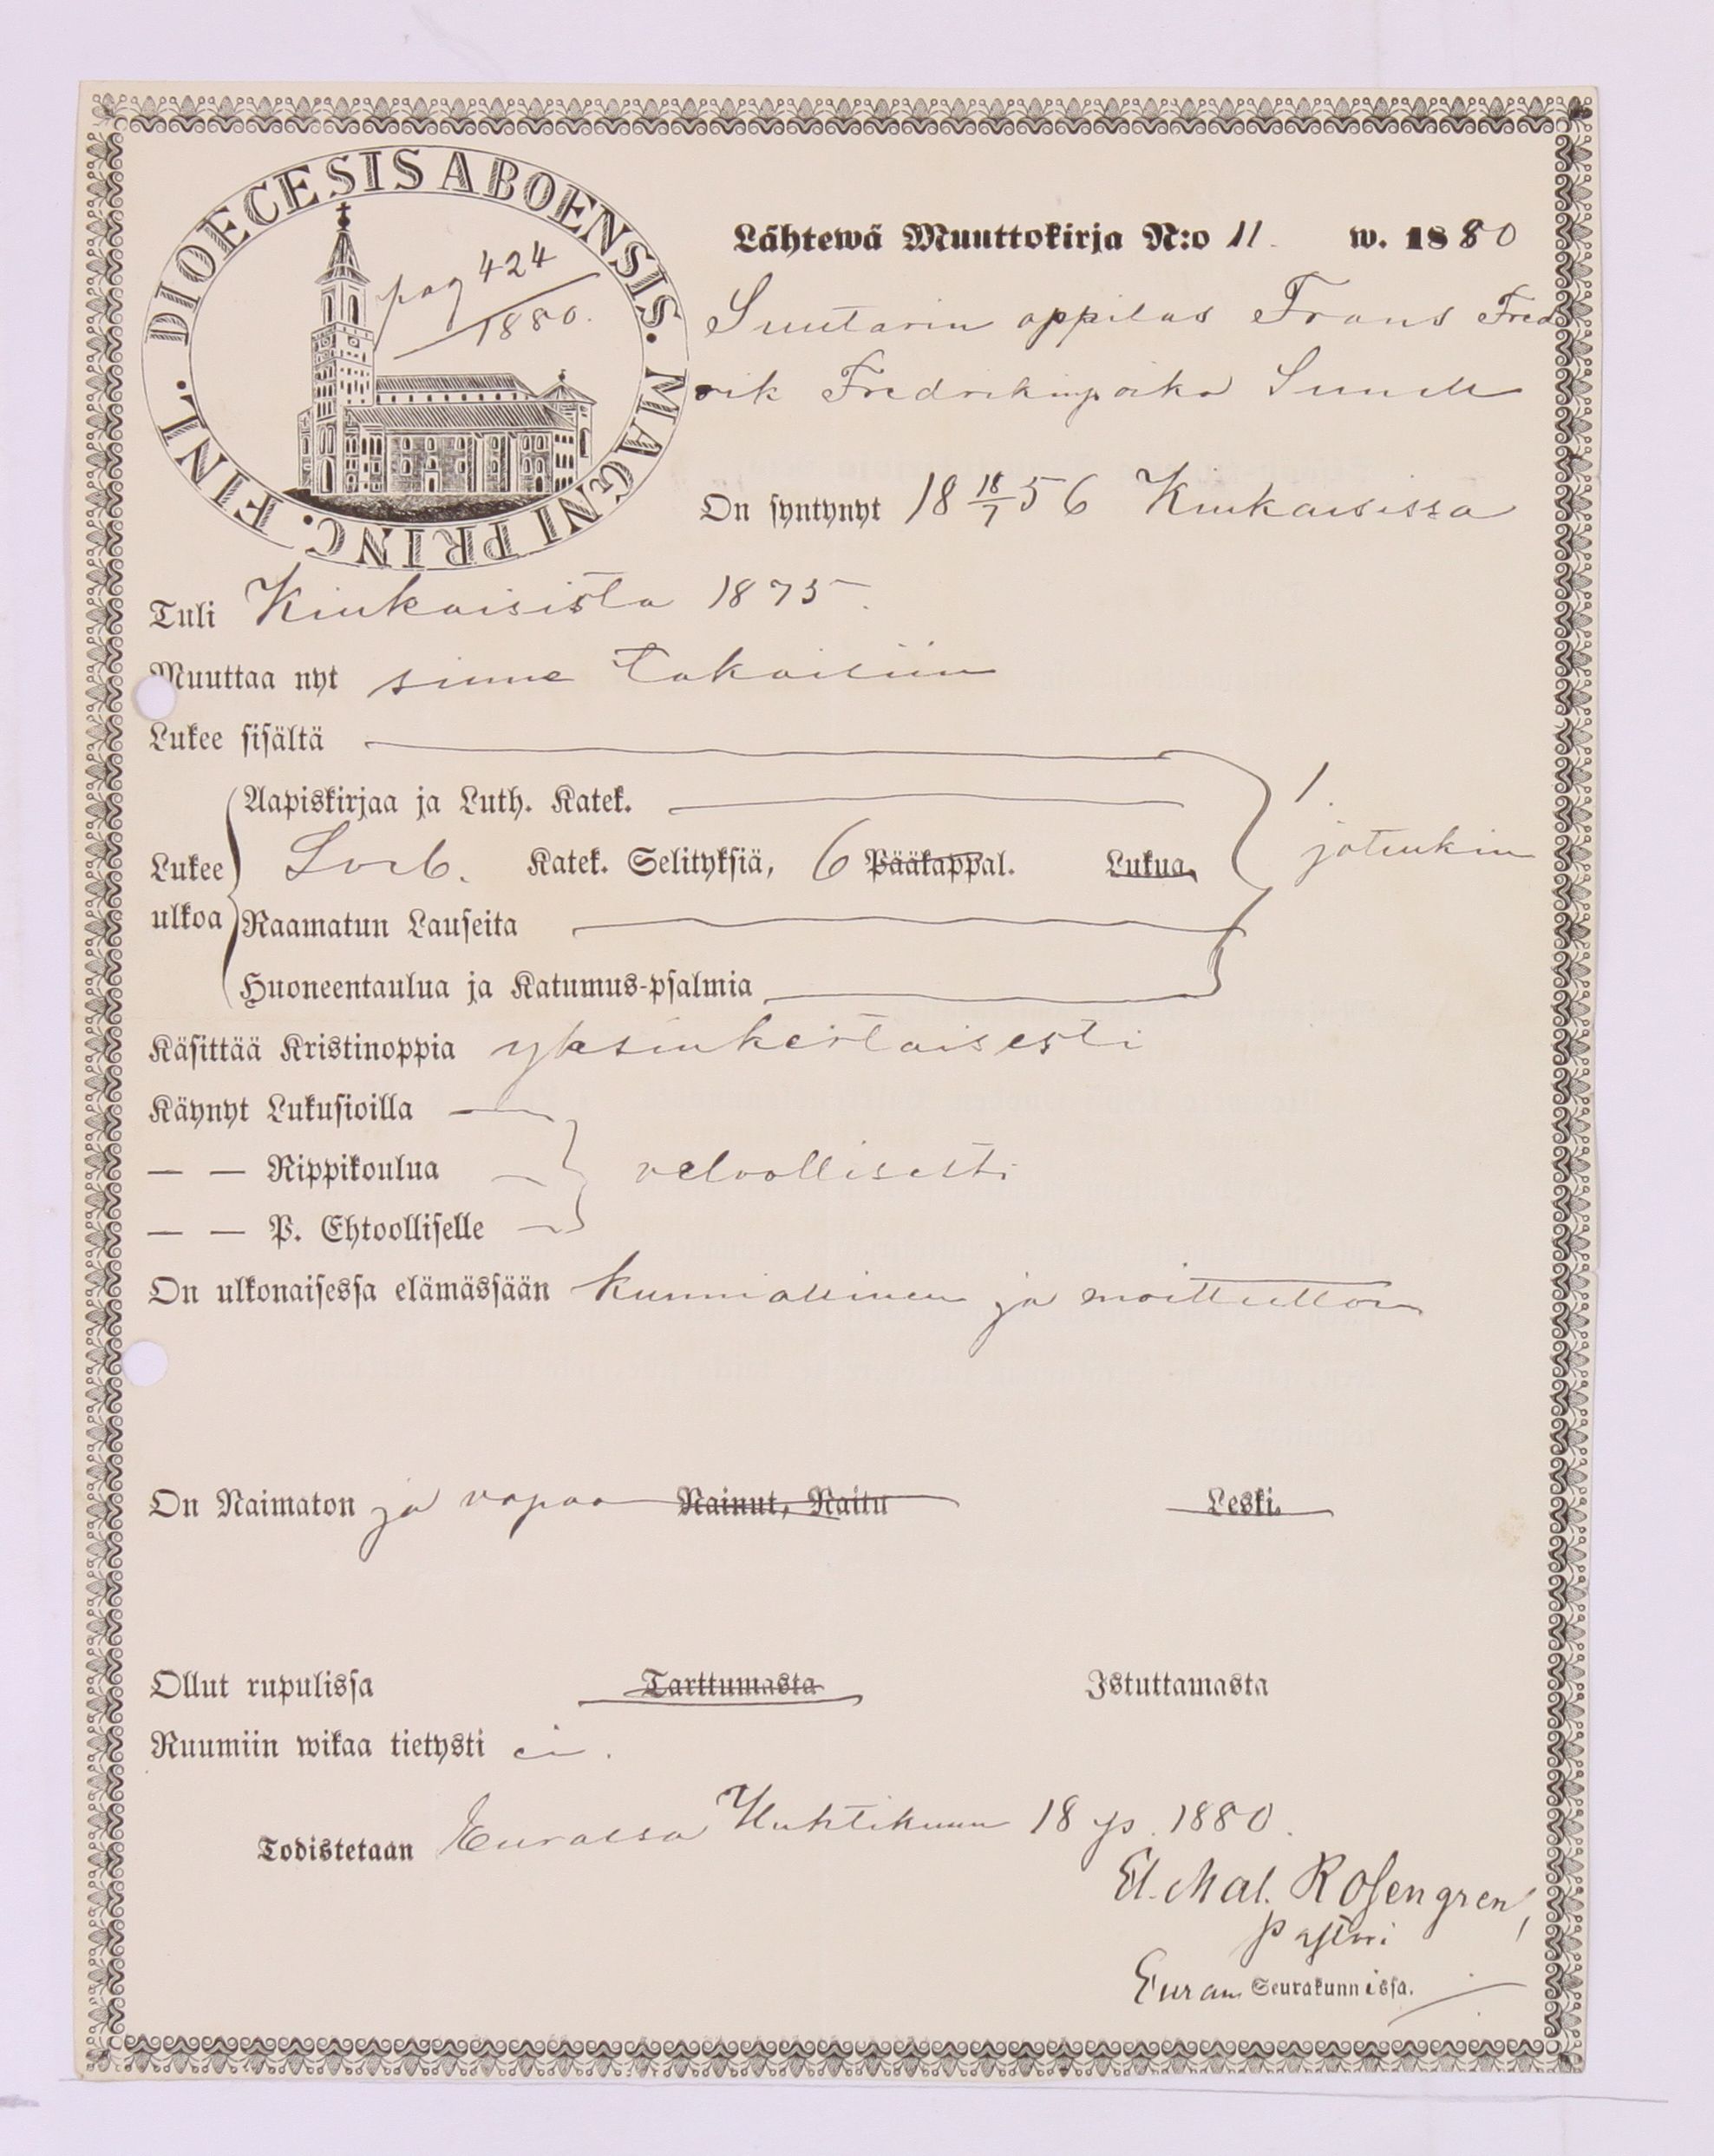 DIOECESIS ABOENSIS. MAGNI PRINC. FINL.
pag 424
1880.
Lähtewä Muuttokirja N:o 11. w. 1880
Suutarin oppilas Frans Fred
rik Fredrikinpoika Sundell
On syntynyt 18 18/7 56 Kiukaisissa
Tuli Kiukaisista 1875.
Muuttaa nyt sinne takaisiin
Lukee sisältä
Aapiskirjaa ja Luth. Katek.
1.
Lukee ulkoa
Katek. Selityksiä, 6 Pääkappal. Lukua.
jotenkin
Raamatun Lauseita
Huoneentaulua ja Katumus-psalmia
Käsittää Kristinoppia yksinkertaisesti
Käynyt Lukusioilla
— — Rippikoulua velvollisesti
— — P. Ehtoolliselle
On ulkonaisessa elämässään kunniallinen ja moitteetton
On Naimaton ja vapaa Nainut, Naitu Leski.
Ollut rupulissa Tarttumasta Istuttamasta
Ruumiin wikaa tietysti ei.
Todistetaan Eurassa Huhtikuun 18 p. 1880.
El. Mal. Rosengren,
Pastori
Euran Seurakunnissa.